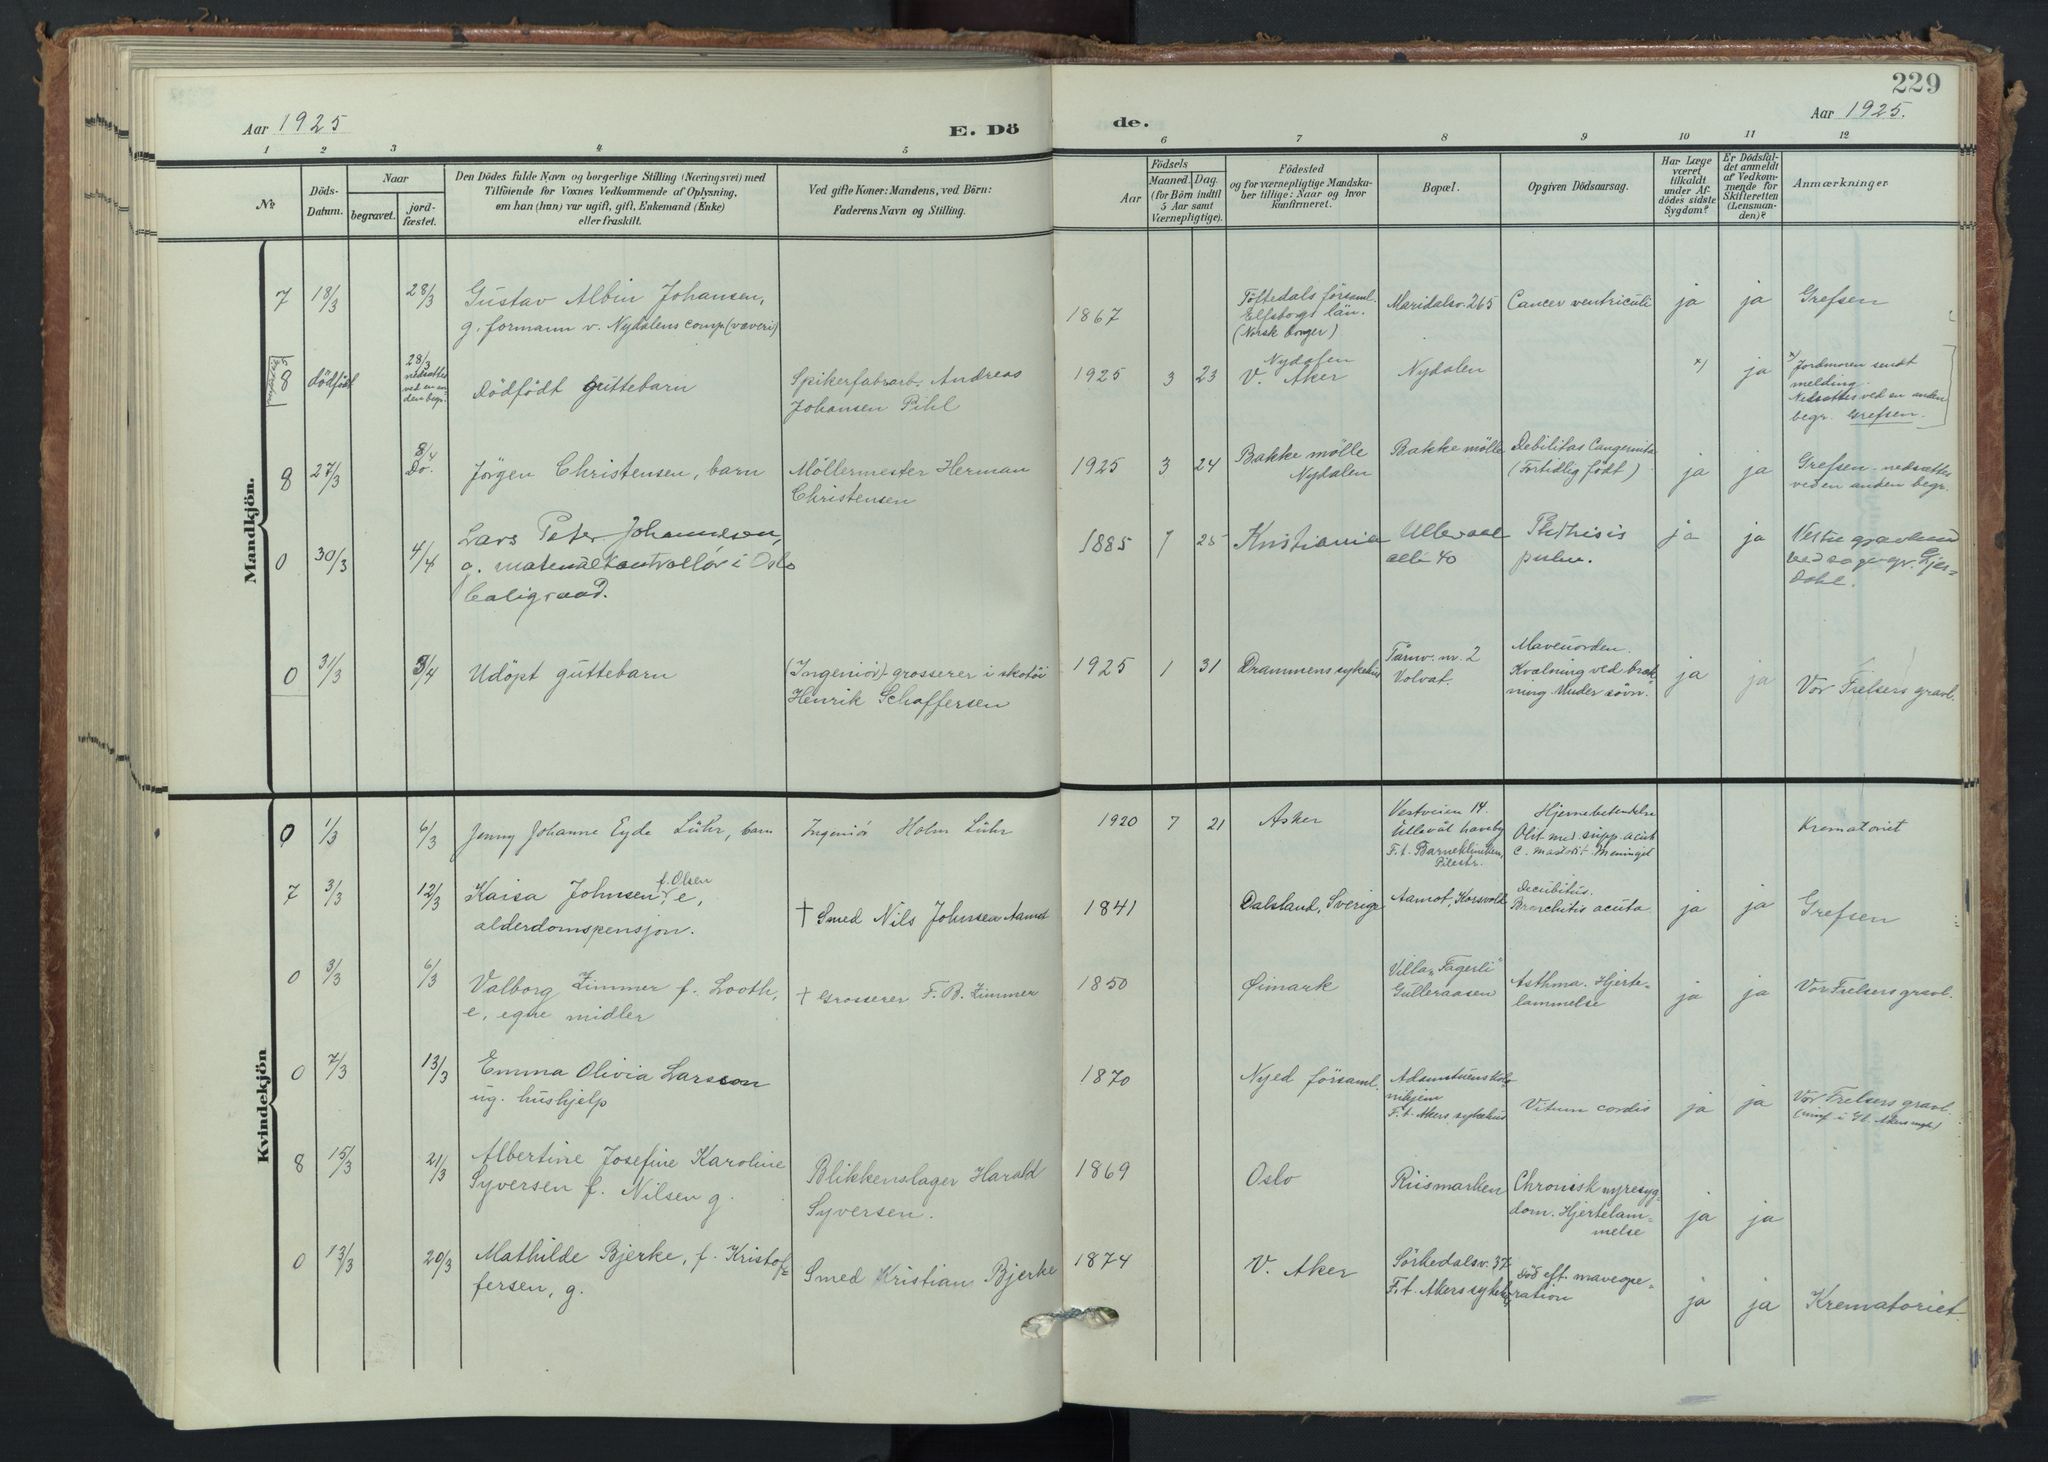 229
Aar 1925
E. Dö
de.
Aar 1925.
1 2 3 4 5 6 7 8 9 10 11 12
No.
Döds-
Datum.
Naar
begravet.
jord-
fæstet.
Den Dödes fulde Navn og borgerlige Stilling (Næringsvei) med
Tilföiende for Voxnes Vedkommende af Oplysning,
om han (hun) var ugift, gift, Enkemand (Enke)
eller fraskilt.
Ved gifte Koner: Mandens, ved Börn:
Faderens Navn og Stilling.
Aar
Födsels
Maaned. Dag.
(for Börn indtil
5 Aar samt
Værnepligtige).
Födested
og for værnepligtige Mandska-
ber tillige: Naar og hvor
konfirmeret.
Bopæl.
Opgiven Dödsaarsag.
Har Læge
været
tilkaldt
under Af-
dödes sidste
Sygdom?
Er Dödsfal-
det anmeldt
af Vedkom-
mende for
Skifteretten
(Lensman-
den)?
Anmærkninger
Mandkjön.
7 18/3 28/3
Gustav Albin Johansen,
g. formann v. Nydalens comp. (væveri)
1867
Töftedals församl.
Elfsborgs län.
(Norsk borger)
Maridalsv. 265
Cancer ventriculi
ja ja Grefsen
8 dödfödt
28/3
nedsattes
ved en an
den begr.
Dödfödt guttebarn
Spikerfabrarb. Andreas
Johansen Pihl
1925 3 23
Nydalen
V. Aker
Nydalen
x) ja
x) Jordmoren sendt
melding.
Nedsattes ved en anden
begr. Grefsen.
8 27/3 8/4
Do.
Jörgen Christensen, barn
Möllermester Herman
Christensen
1925 3 24
Bakke mölle
Nydalen
Bakke mölle
Debilitas Congenita
(Fortidlig födt)
ja ja
Grefsen - nedsættes
ved en anden begr.
0 30/3 4/4
Lars Peter Johannsen,
g. materialkontrollör i Oslo
1885 7 25
Kristiania
Ullevaal
alle 40
Phthisis
pulm.
ja ja
Vestre gravlund
0 31/3 3/4
Udöpt guttebarn
(Ingeniör) grosserer i skotöi
Henrik Schaffersen
1925 1 31
Drammens sykehus
Tårnv. nr. 2
Volvat.
Maveuorden.
Kvælning ved bræk-
ning under sövn.
ja ja
Vor Frelsers gravl.
Kvindekjön
0 1/3 6/3
Jenny Johanne Eyde Lühr, barn
Ingeniör Holm Lühr
1920 7 21
Asker
Vestveien 14.
Ullevål haveby
F. t. Barneklinikken,
Pilestr.
Hjernebetendelse
Otit med. supp. acut
c. mastoit. Meningit
Krematoriet
7 3/3 12/3
Kaisa Johnsen f. Olsen, e,
alderdomspensjon.
† Smed Nils Johnsen Aamot
1841
Dalsland, Sverige
Aamot, Korsvold
Decubitus.
Bronchitis acuta.
ja ja Grefsen
0 3/3 6/3
Valborg Zimmer f. Looth,
e, egne midler
† Grosserer F. B. Zimmer
1850
Øimark
Villa „Fagerli"
Gulleraasen
Asthma. Hjerte-
lammelse
ja ja Vor Frelsers gravl.
0 7/3 13/3
Emma Olivia Larsson
ug. hushjelp
1870
Nyed församl.
F. t. Akers sykehus
Vitium cordis
ja ja
Vor Frelsers gravl.
8 15/3 21/3
Albertine Josefine Karoline
Syversen f. Nilsen g.
Blikkenslager Harald
Syversen.
1869
Oslo
Riismarken
Chronisk nyresyg-
dom. Hjertelam-
melse
ja ja
0 13/3 20/3
Mathilde Bjerke, f. Kristof-
fersen, g.
Smed Kristian Bjerke
1874
V. Aker
Sörkedalsv. 37
F. t. Akers sykehus
Död eft. maveope-
ration
ja ja Krematoriet.